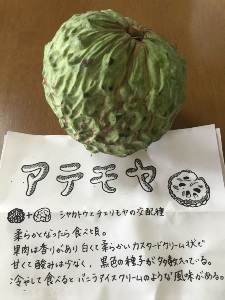 アテモヤ
+ シャカトウとチェリモヤの交配種
柔らかとなったら食べ頃。
果肉は香りがあり白くて柔らかいカスタードクリーム状で
甘くて酸みは少なく、黒色の種子が多数入っている。
冷やして食べるとバニラアイスクリームのような風味がある。